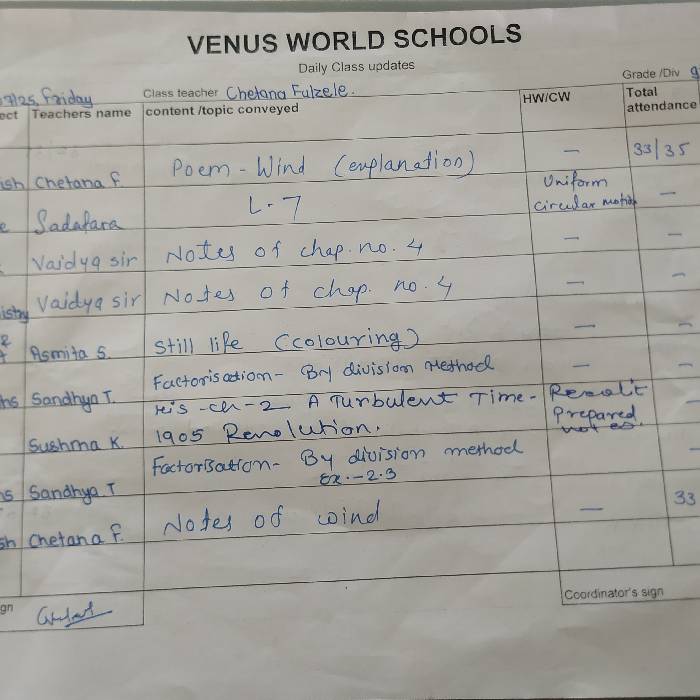 VENUS WORLD SCHOOLS
Daily Class updates
7/25, Friday Class teacher Chetana Fulzele. Grade /Div 9
ect Teachers name content /topic conveyed HW/CW Total attendance
ish Chetana F. Poem - Wind (explanation) — 33/35
e Sadafara L-7 Uniform circular motion —
Vaidya sir Notes of chap. no. 4 — —
istry Vaidya sir Notes of chap. no. 4 — —
Asmita S. Still life (colouring) — —
hs Sandhya T. Factorisation - By division Method — —
Sushma K. His - ch - 2 A Turbulent Time - 1905 Revolution. Result Prepared notes. —
hs Sandhya T Factorisation - By division method Ex. - 2.3 —
sh Chetana F. Notes of wind — 33
gn
Coordinator's sign